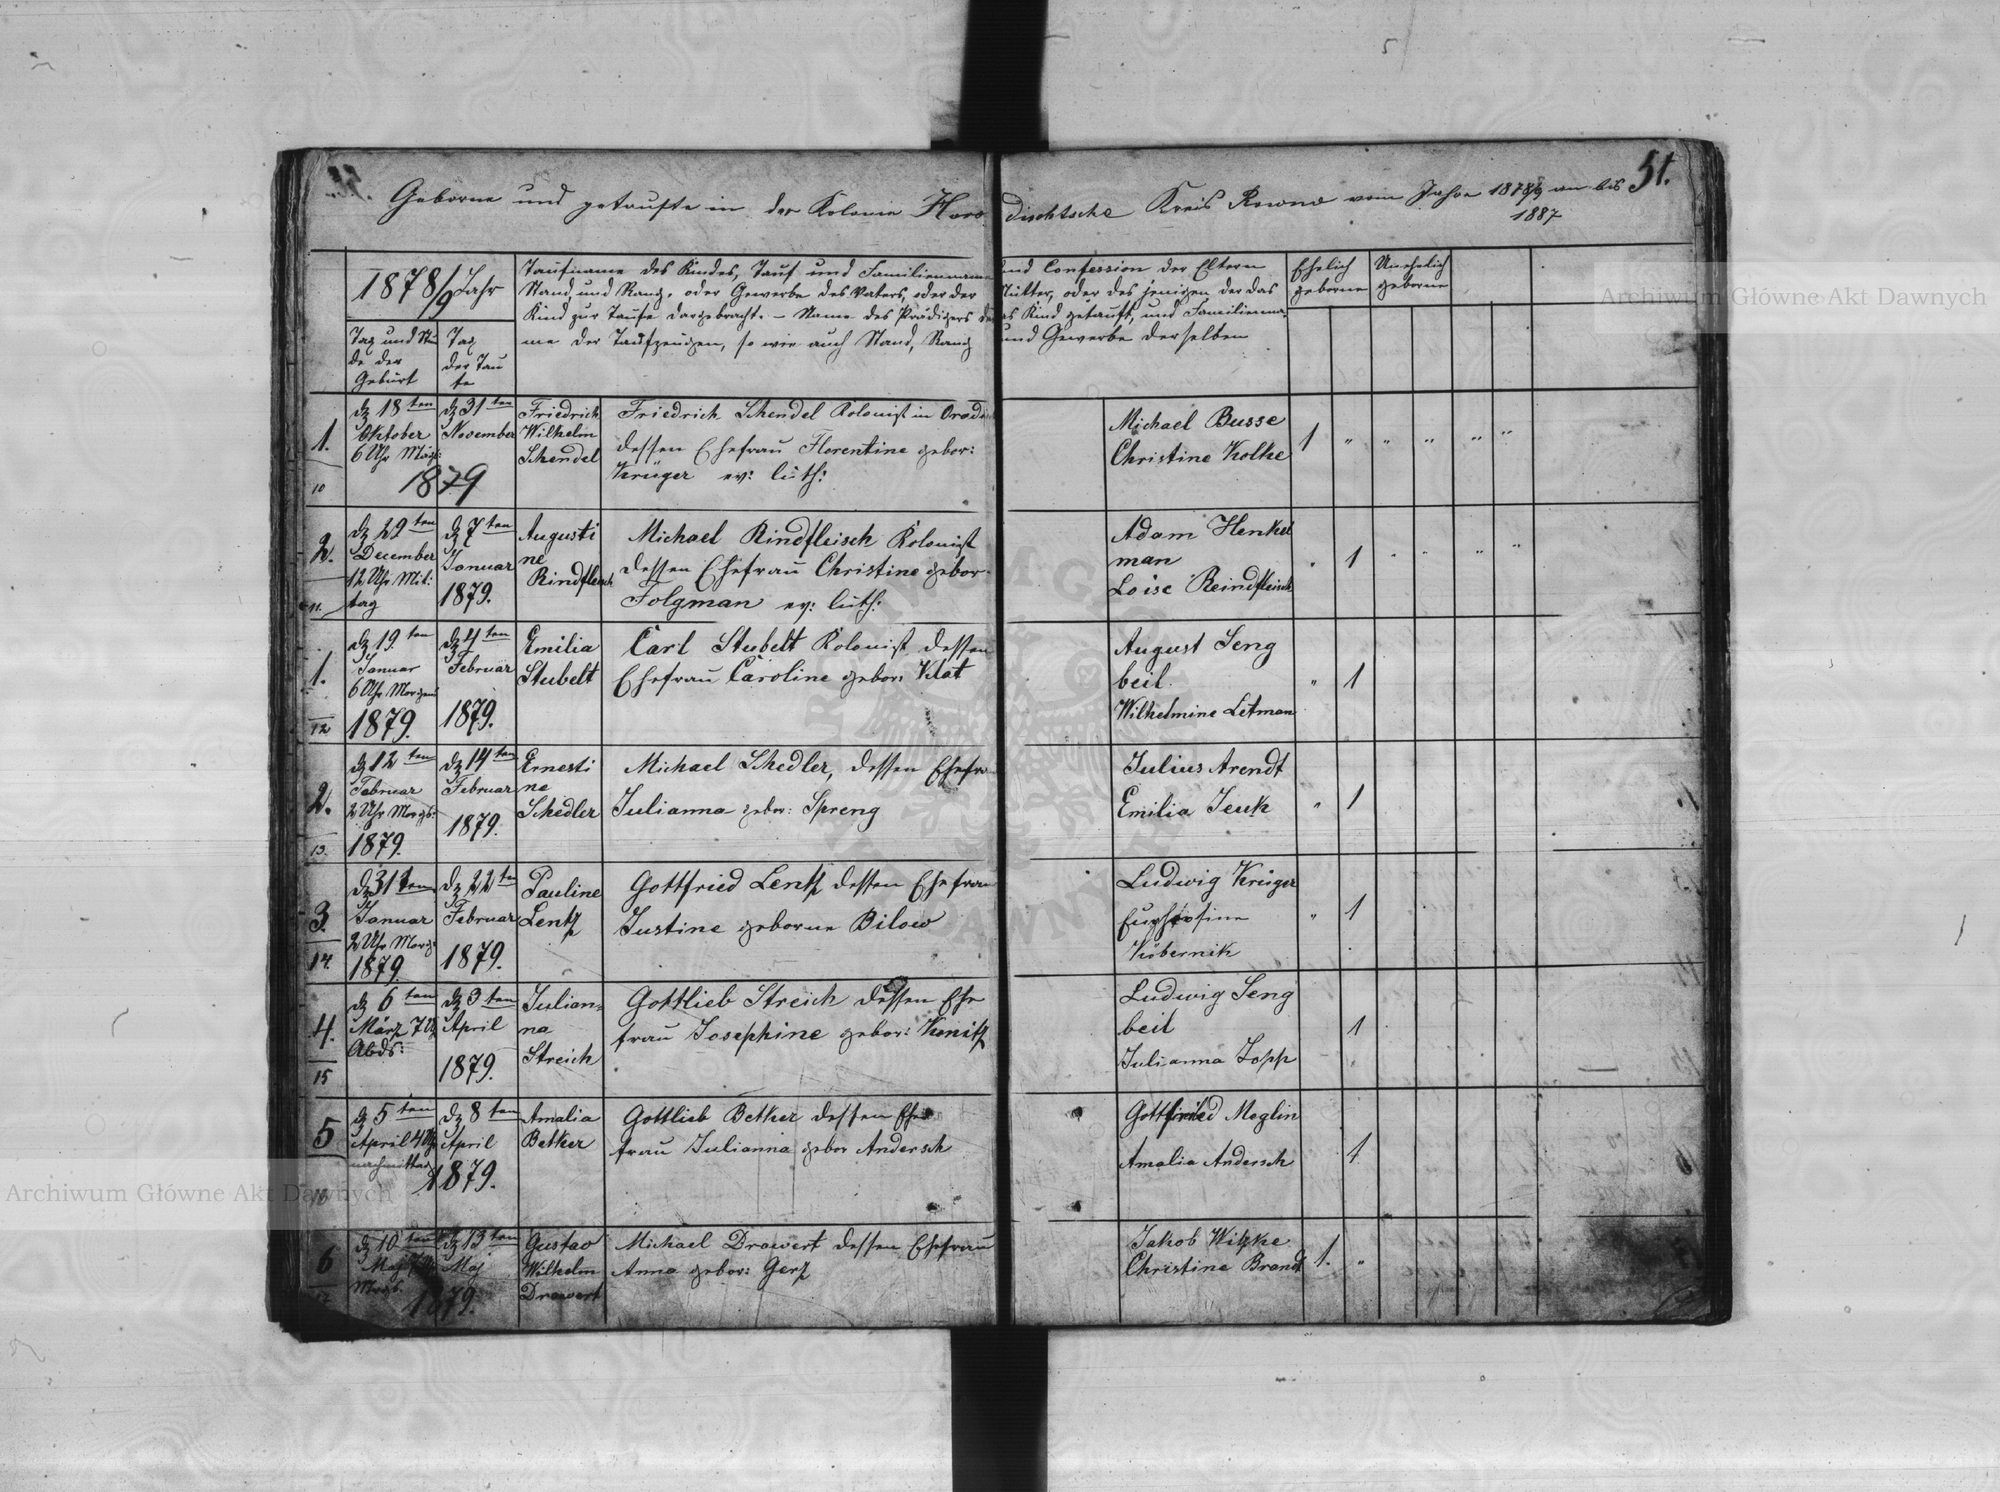 51.
Geborne und getaufte in der Kolonie Horodischtsche Kreis Rowno vom Jahre 1878/9 an bis
1887
1878/9 Jahr
Tag und Stunde der Geburt
Tag der Taufe
Taufname des Kindes, Tauf und Familienname und Confession der Eltern
Stand und Rang, oder Gewerbe des Vaters, oder der Mutter, oder des jenigen der das
Kind zur Taufe dargebracht. – Name des Prädigers der das Kind getauft, und Familienna-
me der Taufzeugen, so wie auch Stand, Rang und Gewerbe derselben
Ehelich geborne
Unehelich geborne
1.
10
dz 18ten
Oktober
6 Uhr Morgs:
1879
dz 31ten
November
Friedrich
Wilhelm
Schendel
Friedrich Schendel Kolonist in
dessen Ehefrau Florentine gebor:
Krüger ev: luth:
Michael Busse
Christine Kolke
1 " " " " "
2.
11.
dz 29ten
December
12 Uhr Mit:
tag
dz 7ten
Januar
1879.
Augusti
ne
Rindfleisch
Michael Rindfleisch Kolonist
dessen Ehefrau Christine gebor
Folgman ev: luth:
Adam Henkel
man
Loise Reindfleisch
" 1 " " " "
1.
12
dz 19ten
Januar
6 Uhr Morgens
1879.
dz 4ten
Februar
1879.
Emilia
Stubelt
Carl Stubelt Kolonist dessen
Ehefrau Caroline gebor: Klat
August Seng
beil.
Wilhelmine Letman
" 1
2.
13.
dz 12ten
Februar
2 Uhr Morgs:
1879.
dz 14ten
Februar
1879.
Ernesti
ne
Schedler
Michael Schedler, dessen Ehefrau
Julianna gebor: Spreng
Julius Arendt
Emilia Jeuk
" 1
3.
14.
dz 31ten
Januar
2 Uhr Morgs
1879
dz 22ten
Februar
1879.
Pauline
Lentz
Gottfried Lentz dessen Ehefrau
Justine geborne Bilow
Ludwig Krüger
Euphrosine
Köbernik
" 1
4.
15
dz 6ten
März 7 Uhr
Abds:
dz 3ten
April
1879.
Julian=
na
Streich
Gottlieb Streich dessen Ehe
frau Josephine gebor: Konitz
Ludwig Seng
beil
Julianna Zopp
1
5
16
dz 5ten
April 4 Uhr
nachmittag
dz 8ten
April
1879.
Amalia
Betker
Gottlieb Betker dessen Ehe
frau Julianna gebor Andersch
Gottfried Meglin
Amalia Andersch
1.
6
17
dz 10ten
Maj 7 Uhr
Morgs.
dz 13ten
Maj
1879.
Gustav
Wilhelm
Drawert
Michael Drawert dessen Ehefrau
Anna gebor: Gerz
Jakob Witzke
Christine Brandt
1. "
Archiwum Główne Akt Dawnych
Archiwum Główne Akt Dawnych